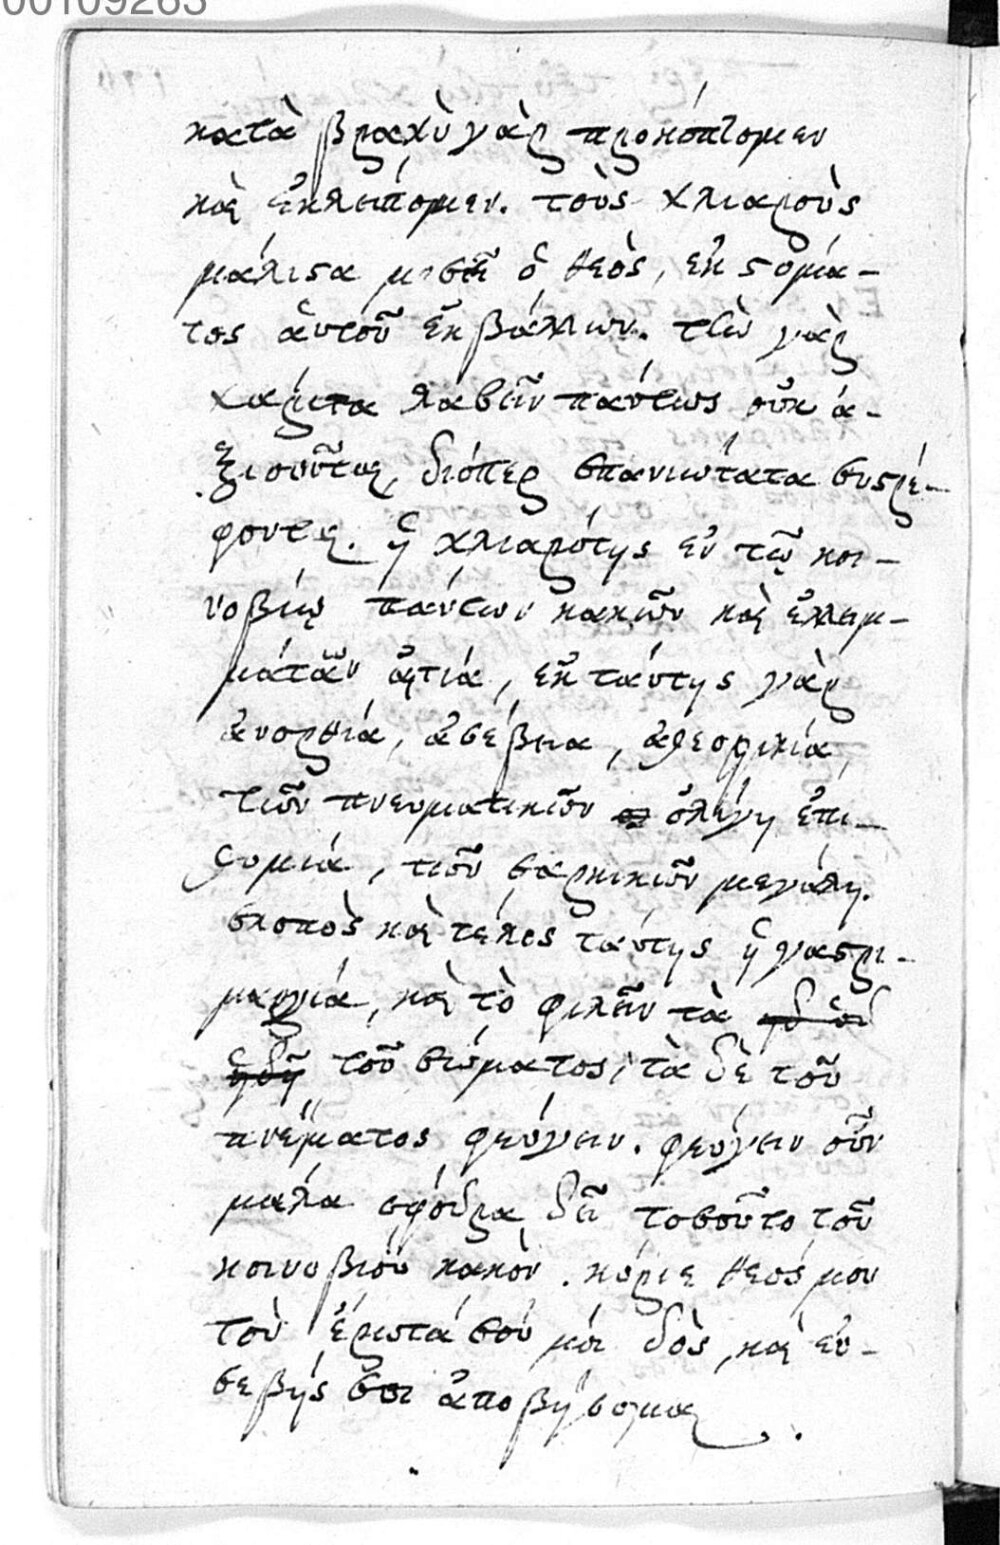 00109263
κατὰ βραχὺ γὰρ προκόπτομεν
καὶ ἐκλείπομεν. τοὺς χλιαροὺς
μάλιστα μισεῖ ὁ θεὸς, ἐκ στόμα-
τος ἀυτοῦ ἐκβάλλων. τὴν γὰρ
χάριτα λαβεῖν πάντως οὐκ ἀ-
ξιοῦντας, διόπερ σπανιώτατα συστρέ-
φονται. ἡ χλιαρότης ἐν τῷ κοι-
νοβίῳ πάντων κακῶν καὶ ἐλλειμ-
μάτων ἀιτία, ἐκ τάυτης γὰρ
ἀνορθία, ἀσέβεια, ἀθεοφιλία,
τῶν πνευματικῶν ὀλίγη ἐπι-
θυμία, τῶν σαρκικῶν μεγάλη.
σκοπὸς καὶ τέλος τάυτης ἡ γαστρι-
μαργία, καὶ τὸ φιλεῖν τὰ
τοῦ σώματος, τὰ δὲ τοῦ
πνέυματος φεύγειν. φεύγειν οὖν
μάλα σφόδρα δεῖ τοσοῦτο τοῦ
κοινοβίου κακὸν. κύριε θεός μου
τὸν ἔρωτά σου μόι δὸς, καὶ ἐυ-
σεβής σοι ἀποβήσομαι.